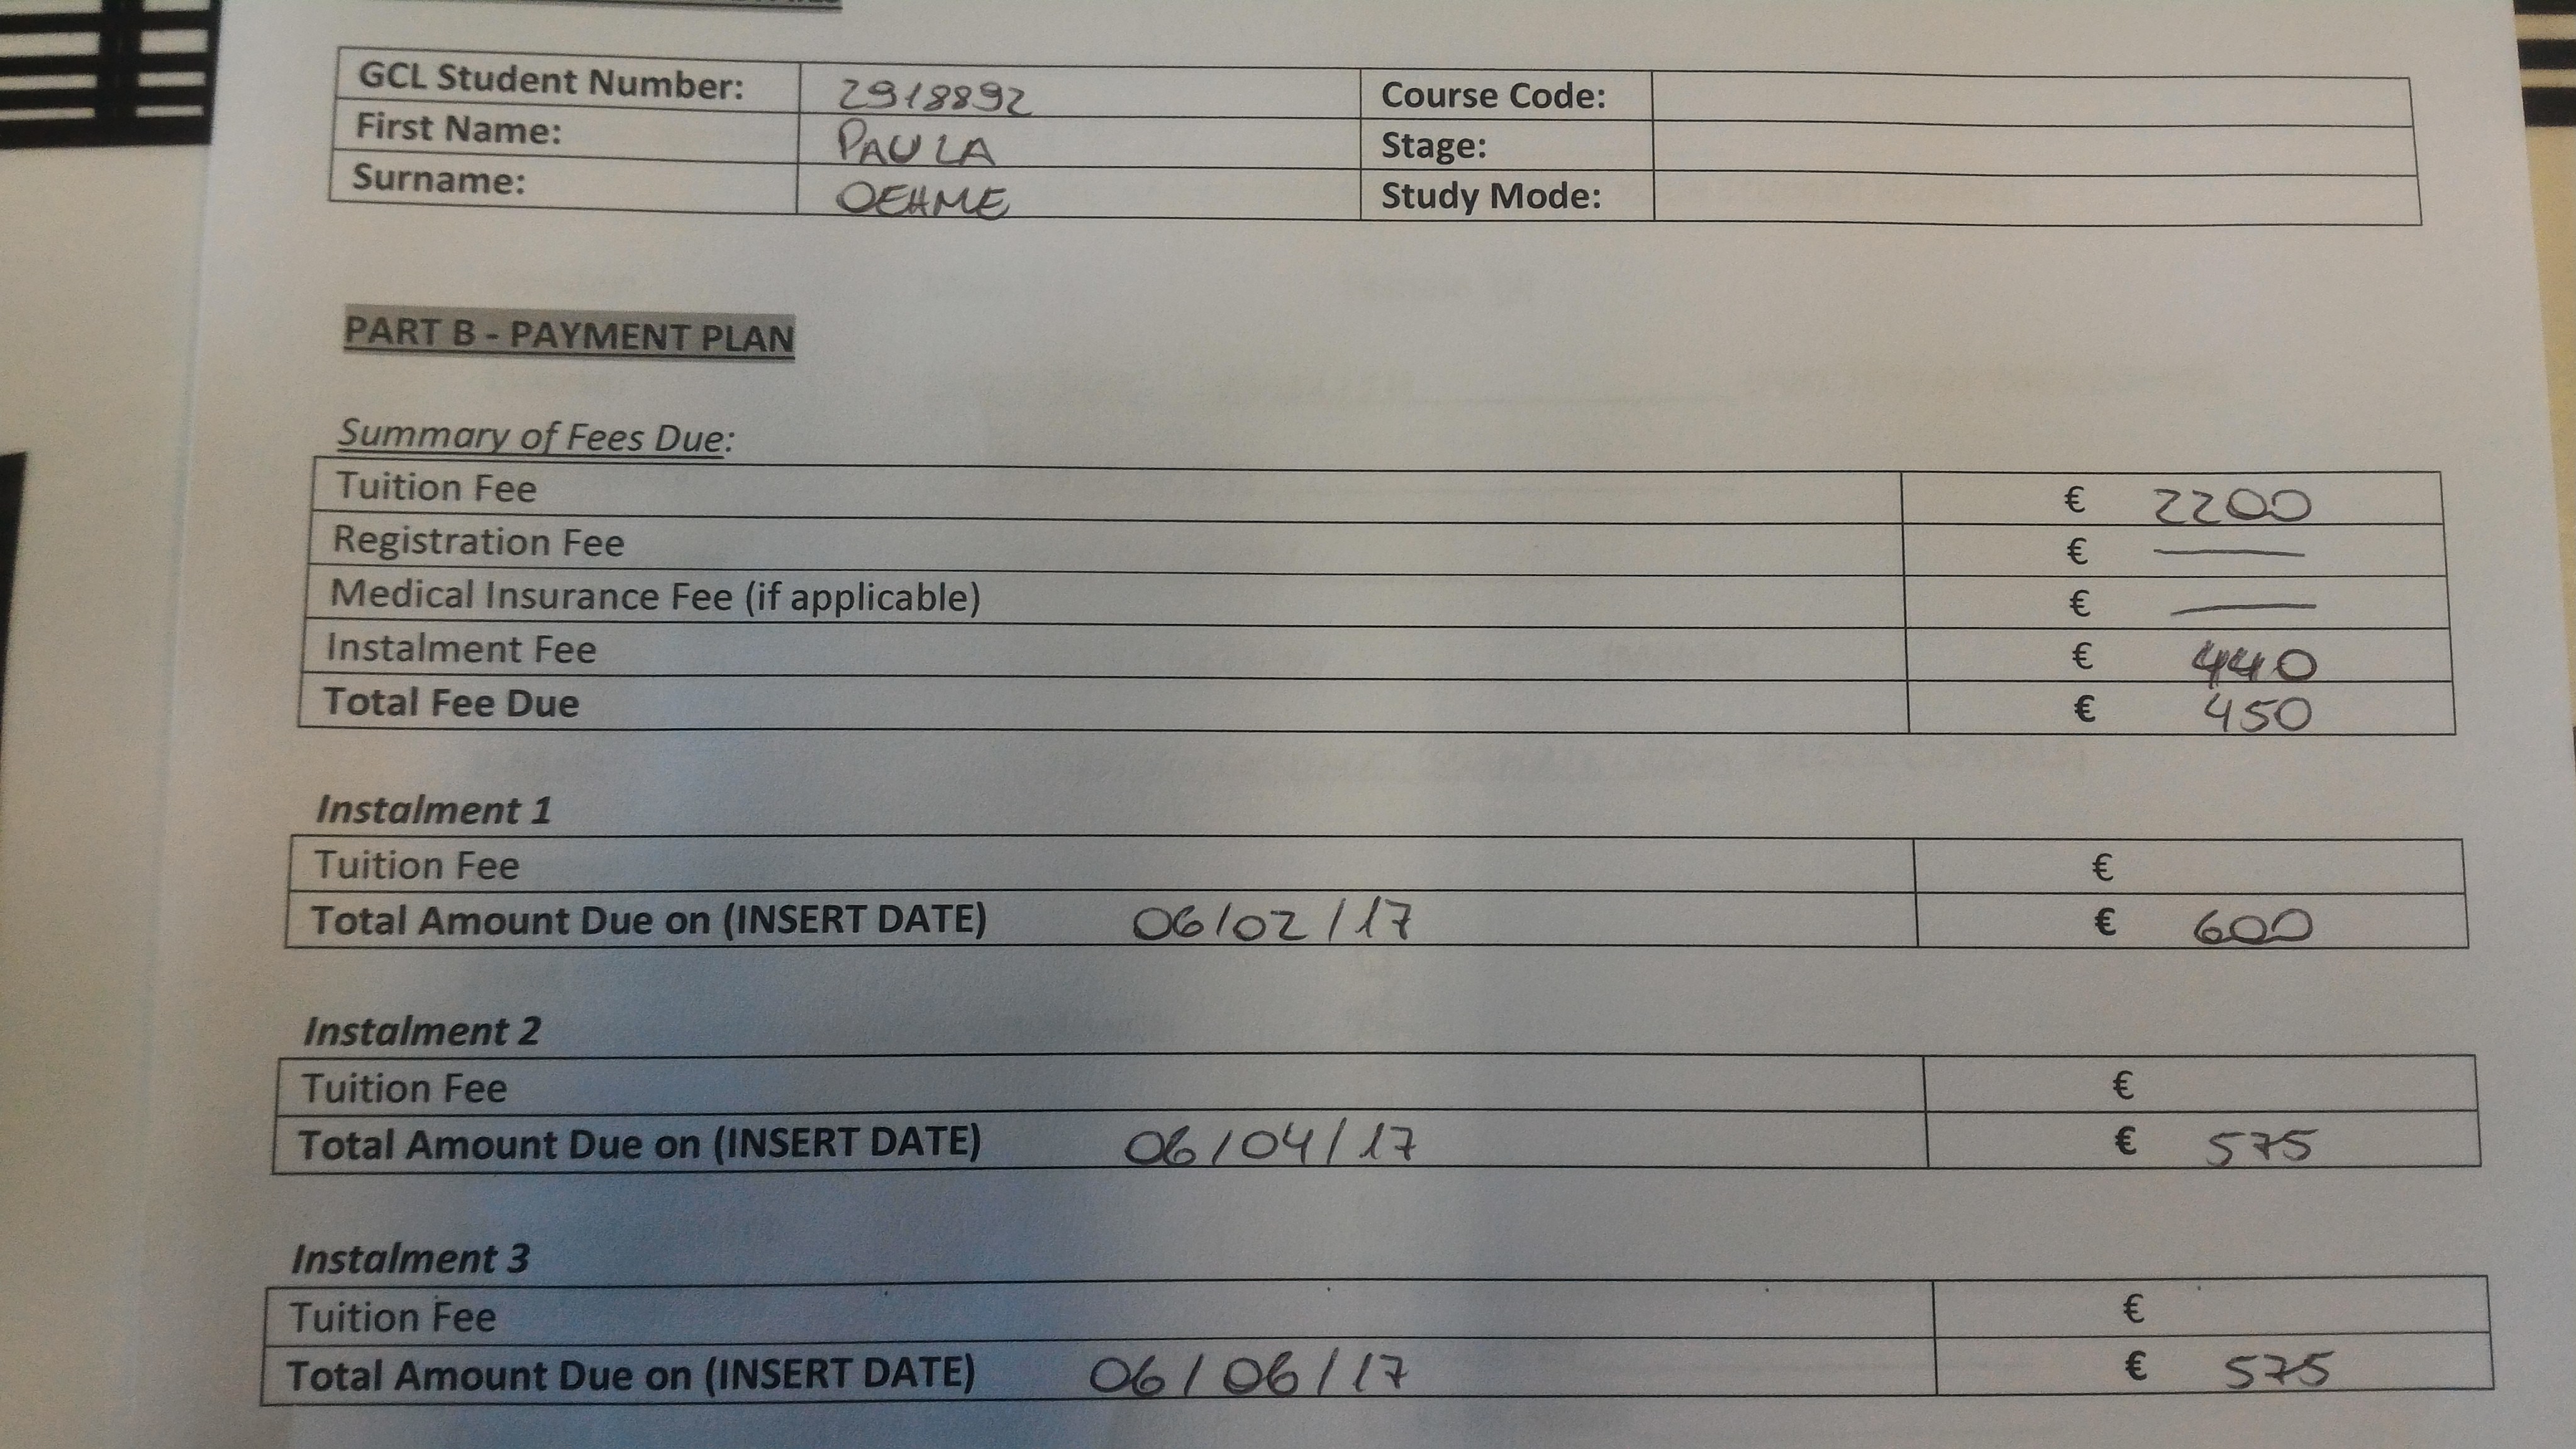 GCL Student Number: 2918892 Course Code:
First Name: PAULA Stage:
Surname: OEHME Study Mode:
PART B - PAYMENT PLAN
Summary of Fees Due:
Tuition Fee € 2200
Registration Fee € —
Medical Insurance Fee (if applicable) € —
Instalment Fee € 440
Total Fee Due € 450
Instalment 1
Tuition Fee €
Total Amount Due on (INSERT DATE) 06/02/17 € 600
Instalment 2
Tuition Fee €
Total Amount Due on (INSERT DATE) 06/04/17 € 575
Instalment 3
Tuition Fee €
Total Amount Due on (INSERT DATE) 06/06/17 € 575